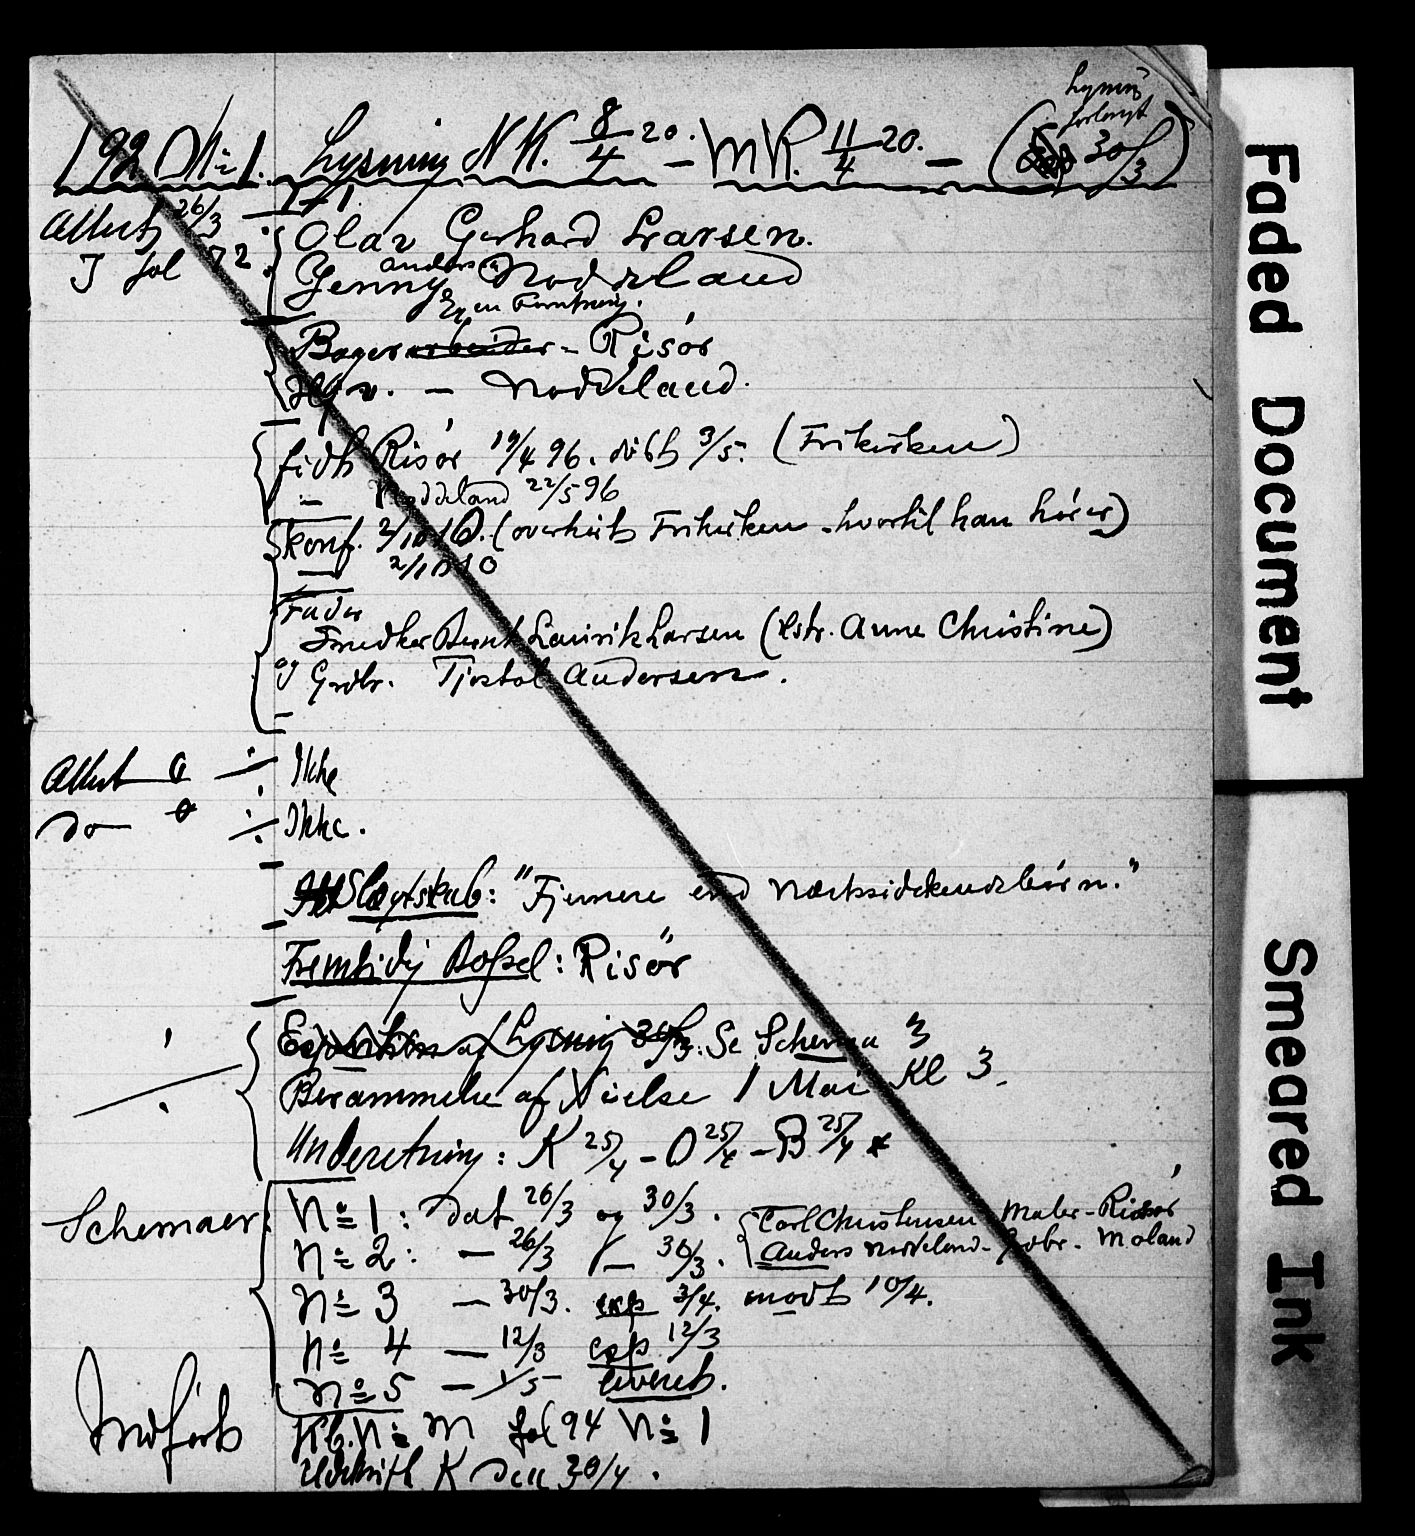 Lysning forlangt
1920 No 1. Lysning NK. 8/4 20. – MK. 11/4 20. – ( 30/3)
Attest 26/3
I fol 72
Olav Gerhard Larsen.
Jenny Anders Noddeland
Egen Forretning.
Bagerarbeider - Risór
Noddeland.
født Risór 19/4 96. døbt 3/5. (Frikirken)
— Noddeland 22/5 96
Konf. 2/10 10. (overhørt Frikirken - hvortil han hører)
2/10 10
Fader
Snedker Bernt Lauritz Larsen (Hstr. Anne Christine)
og Grdbr. Tjostol Andersen.
Attest 0 ÷ Ikke
do 0 ÷ Ikke.
Slægtskab: "Fjernere end Næstsødskendebørn."
Fremtidig Bopæl: Risör
Expedition af Lysning 30/3: Se Schema 3
Berammelse af Vielse 1 Mai Kl 3.
Underretning: K 25/4 - O 25/4 - B 25/4
Schemaer:
No 1: dat 26/3 og 30/3. Carl Christensen Maler - Risør
No 2: — 26/3 — 30/3. Anders Noddeland - Grdbr. Moland
No 3 — 30/3. exp 3/4. modt 10/4.
No 4 — 12/3 exp 12/3
No 5 — 1/5 leveret.
Indført
Kb. No M fol 94 No 1
Udskrift K den 30/4.
Faded Document
Smeared Ink